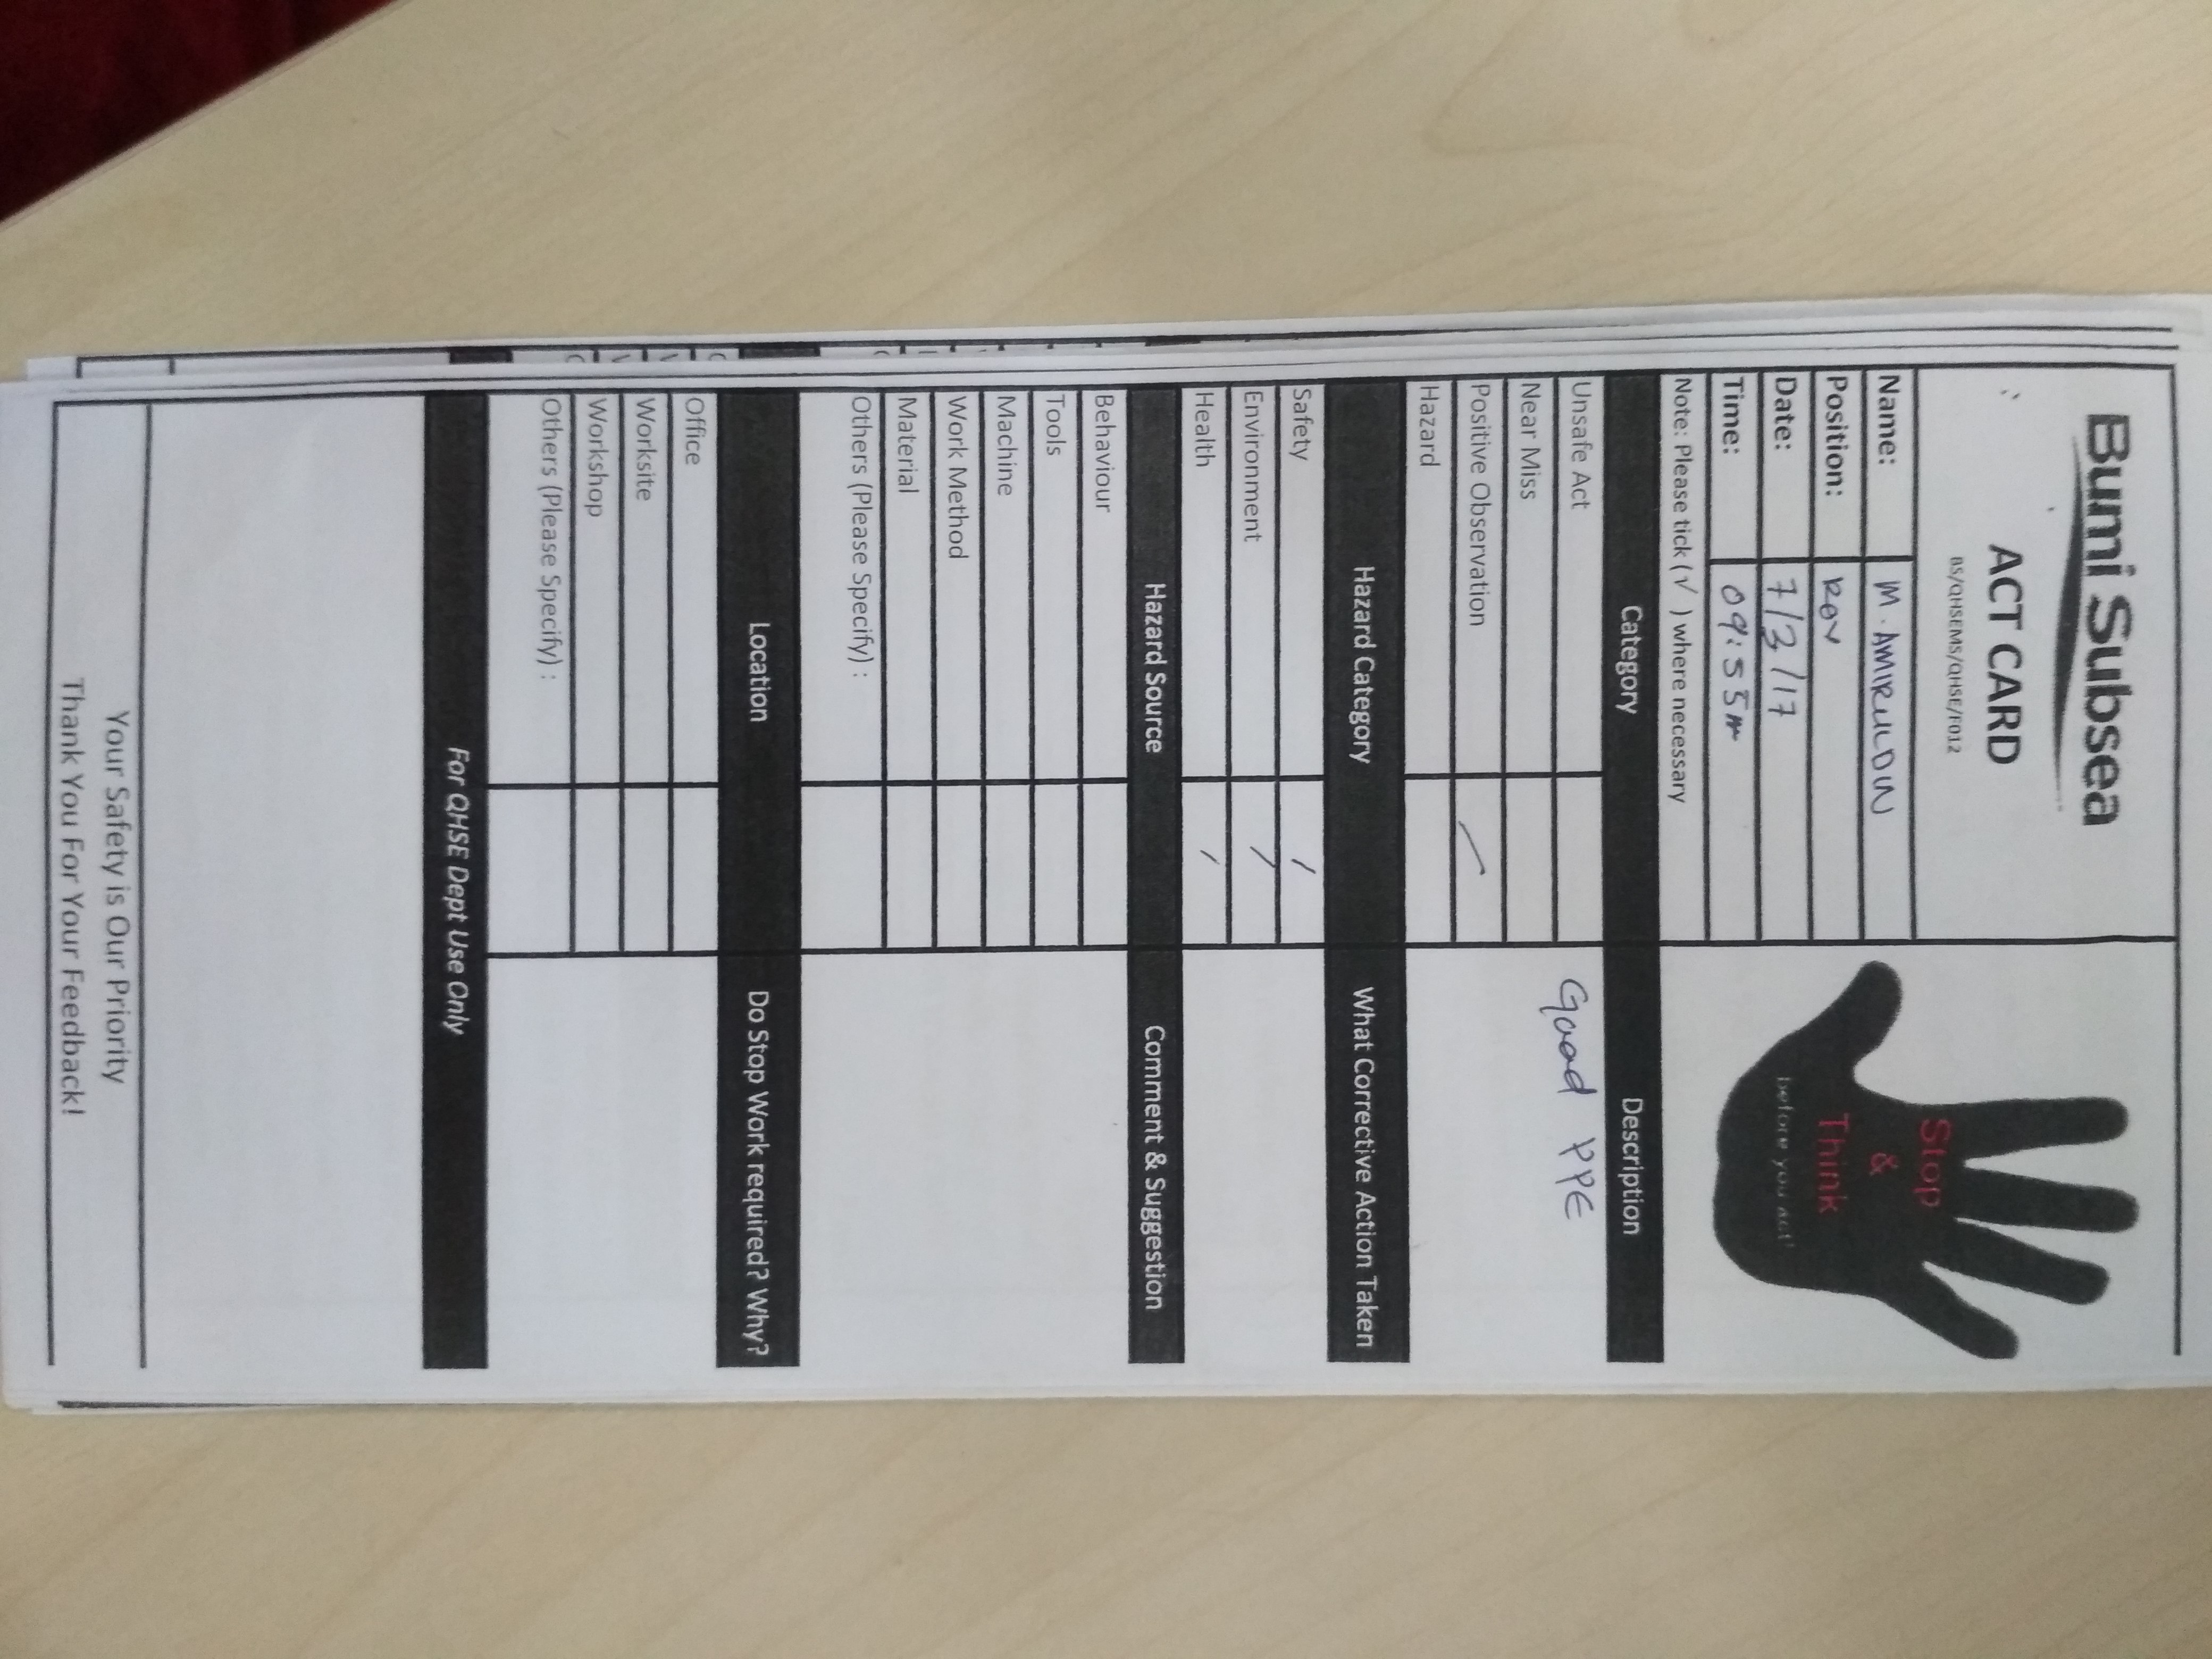 Bumi Subsea
ACT CARD
BS/QHSEMS/QHSE/F012
Stop
&
Think
before you act!
Name: M. AMIRULDIN
Position: ROV
Date: 7/3/17
Time: 09:55
Note: Please tick (√ ) where necessary
Category Description
Unsafe Act Good PPE
Near Miss
Positive Observation /
Hazard
Hazard Category What Corrective Action Taken
Safety /
Environment /
Health /
Hazard Source Comment & Suggestion
Behaviour
Tools
Machine
Work Method
Material
Others (Please Specify) :
Location Do Stop Work required? Why?
Office
Worksite
Workshop
Others (Please Specify) :
For QHSE Dept Use Only
Your Safety is Our Priority
Thank You For Your Feedback!